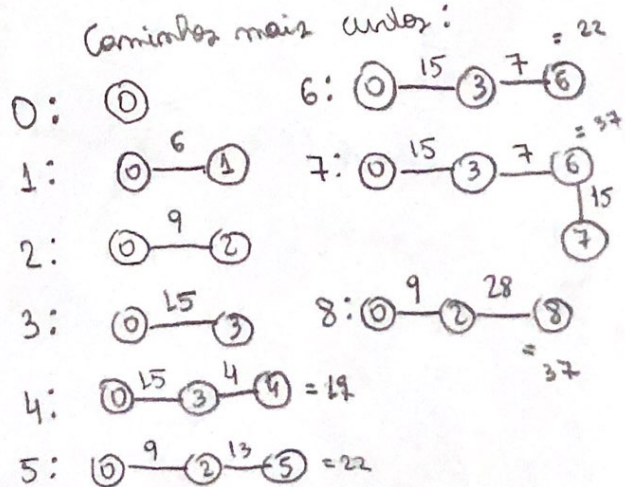 Caminhos mais curtos:
0: 0
1: 0 6 1
2: 0 9 2
3: 0 15 3
4: 0 15 3 4 4 = 19
5: 0 9 2 13 5 = 22
6: 0 15 3 7 6 = 22
7: 0 15 3 7 6 = 37
15
7
8: 0 9 2 28 8
= 37